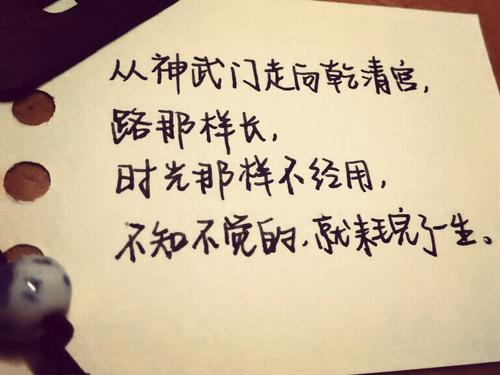 从神武门走向乾清宫,
路那样长,
时光那样不经用,
不知不觉的,就耗完了一生。